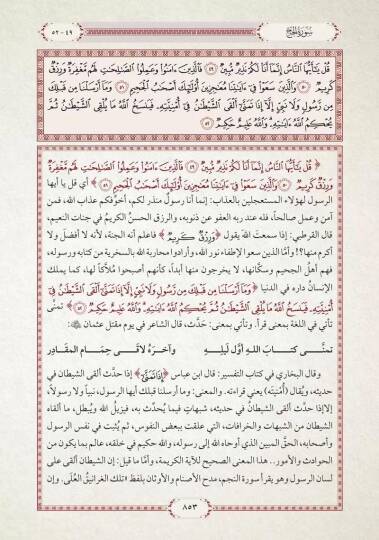 سورة الحج
٤٩ - ٥٢
قُلْ يَٰٓأَيُّهَا ٱلنَّاسُ إِنَّمَآ أَنَا۠ لَكُمْ نَذِيرٌ مُّبِينٌ ۝٤٩ فَٱلَّذِينَ ءَامَنُوا۟ وَعَمِلُوا۟ ٱلصَّٰلِحَٰتِ لَهُم مَّغْفِرَةٌ وَرِزْقٌ
كَرِيمٌ ۝٥٠ وَٱلَّذِينَ سَعَوْا۟ فِىٓ ءَايَٰتِنَا مُعَٰجِزِينَ أُو۟لَٰٓئِكَ أَصْحَٰبُ ٱلْجَحِيمِ ۝٥١ وَمَآ أَرْسَلْنَا مِن قَبْلِكَ
مِن رَّسُولٍ وَلَا نَبِىٍّ إِلَّآ إِذَا تَمَنَّىٰٓ أَلْقَى ٱلشَّيْطَٰنُ فِىٓ أُمْنِيَّتِهِۦ فَيَنسَخُ ٱللَّهُ مَا يُلْقِى ٱلشَّيْطَٰنُ ثُمَّ
يُحْكِمُ ٱللَّهُ ءَايَٰتِهِۦ وَٱللَّهُ عَلِيمٌ حَكِيمٌ ۝٥٢
﴿ قُلْ يَٰٓأَيُّهَا ٱلنَّاسُ إِنَّمَآ أَنَا۠ لَكُمْ نَذِيرٌ مُّبِينٌ ۝٤٩ فَٱلَّذِينَ ءَامَنُوا۟ وَعَمِلُوا۟ ٱلصَّٰلِحَٰتِ لَهُم مَّغْفِرَةٌ
وَرِزْقٌ كَرِيمٌ ۝٥٠ وَٱلَّذِينَ سَعَوْا۟ فِىٓ ءَايَٰتِنَا مُعَٰجِزِينَ أُو۟لَٰٓئِكَ أَصْحَٰبُ ٱلْجَحِيمِ ۝٥١﴾ أي قل يا أيها
الرسول لهؤلاء المستعجلين بالعذاب: إنما أنا رسولٌ منذر لكم، أخوِّفكم عذاب الله، فمن
آمن وعمل صالحاً، فله عند ربه العفو عن ذنوبه، والرزق الحسنُ الكريمُ في جنات النعيم،
قال القرطبي: إذا سمعتَ الله يقول ﴿وَرِزْقٌ كَرِيمٌ﴾ فاعلم أنه الجنة، لأنه لا أفضلَ ولا
أكرم منها!! وأمَّا الذين سعوا لإطفاء نور الله، وأرادوا محاربة الله بالسخرية من كتابه ورسوله،
فهم أهلُ الجحيم وسكَّانها، لا يخرجون منها أبداً، كأنهم أصبحوا مُلَّاكاً لها، كما يملك
الإنسانُ داره في الدنيا ﴿وَمَآ أَرْسَلْنَا مِن قَبْلِكَ مِن رَّسُولٍ وَلَا نَبِىٍّ إِلَّآ إِذَا تَمَنَّىٰٓ أَلْقَى ٱلشَّيْطَٰنُ فِىٓ
أُمْنِيَّتِهِۦ فَيَنسَخُ ٱللَّهُ مَا يُلْقِى ٱلشَّيْطَٰنُ ثُمَّ يُحْكِمُ ٱللَّهُ ءَايَٰتِهِۦ وَٱللَّهُ عَلِيمٌ حَكِيمٌ ۝٥٢﴾ تمنَّى
تأتي في اللغة بمعنى قرأ. وتأتي بمعنى: حَدَّث، قال الشاعر في يوم مقتل عثمان
تمنَّى كتابَ اللهِ أوَّلَ لَيلِهِ وآخرَهُ لاقَى حِمَامَ المَقَادِر
وقال البخاري في كتاب التفسير: قال ابن عباس ﴿إِذَا تَمَنَّىٰٓ﴾ إذا حدَّث ألقى الشيطان في
حديثه، ويُقال (أُمْنِيَّته) يعني قراءته. والمعنى: وما أرسلنا قبلك أيها الرسول، نبياً ولا رسولاً،
إلا إذا حدَّث ألقى الشيطانُ في حديثه، شبهاتٍ فيما يُحدِّث به، فيزيلُ الله ويُبطل، ما ألقاه
الشيطان من الشبهات والخرافات، التي علقت ببعض النفوس، ثم يُثبت في نفس الرسول
وأصحابه، الحقَّ المبين الذي أوحاه الله إلى رسوله، والله حكيم في خلقه، عالم بما يكون من
الحوادث والأمور.. هذا المعنى الصحيح للآية الكريمة، وأمَّا ما قيل: إن الشيطان ألقى على
لسان الرسول وهو يقرأ سورة النجم، مدح الأصنام والأوثان بلفظ «تلك الغرانيقُ العُلَى. وإن
٨٥٣